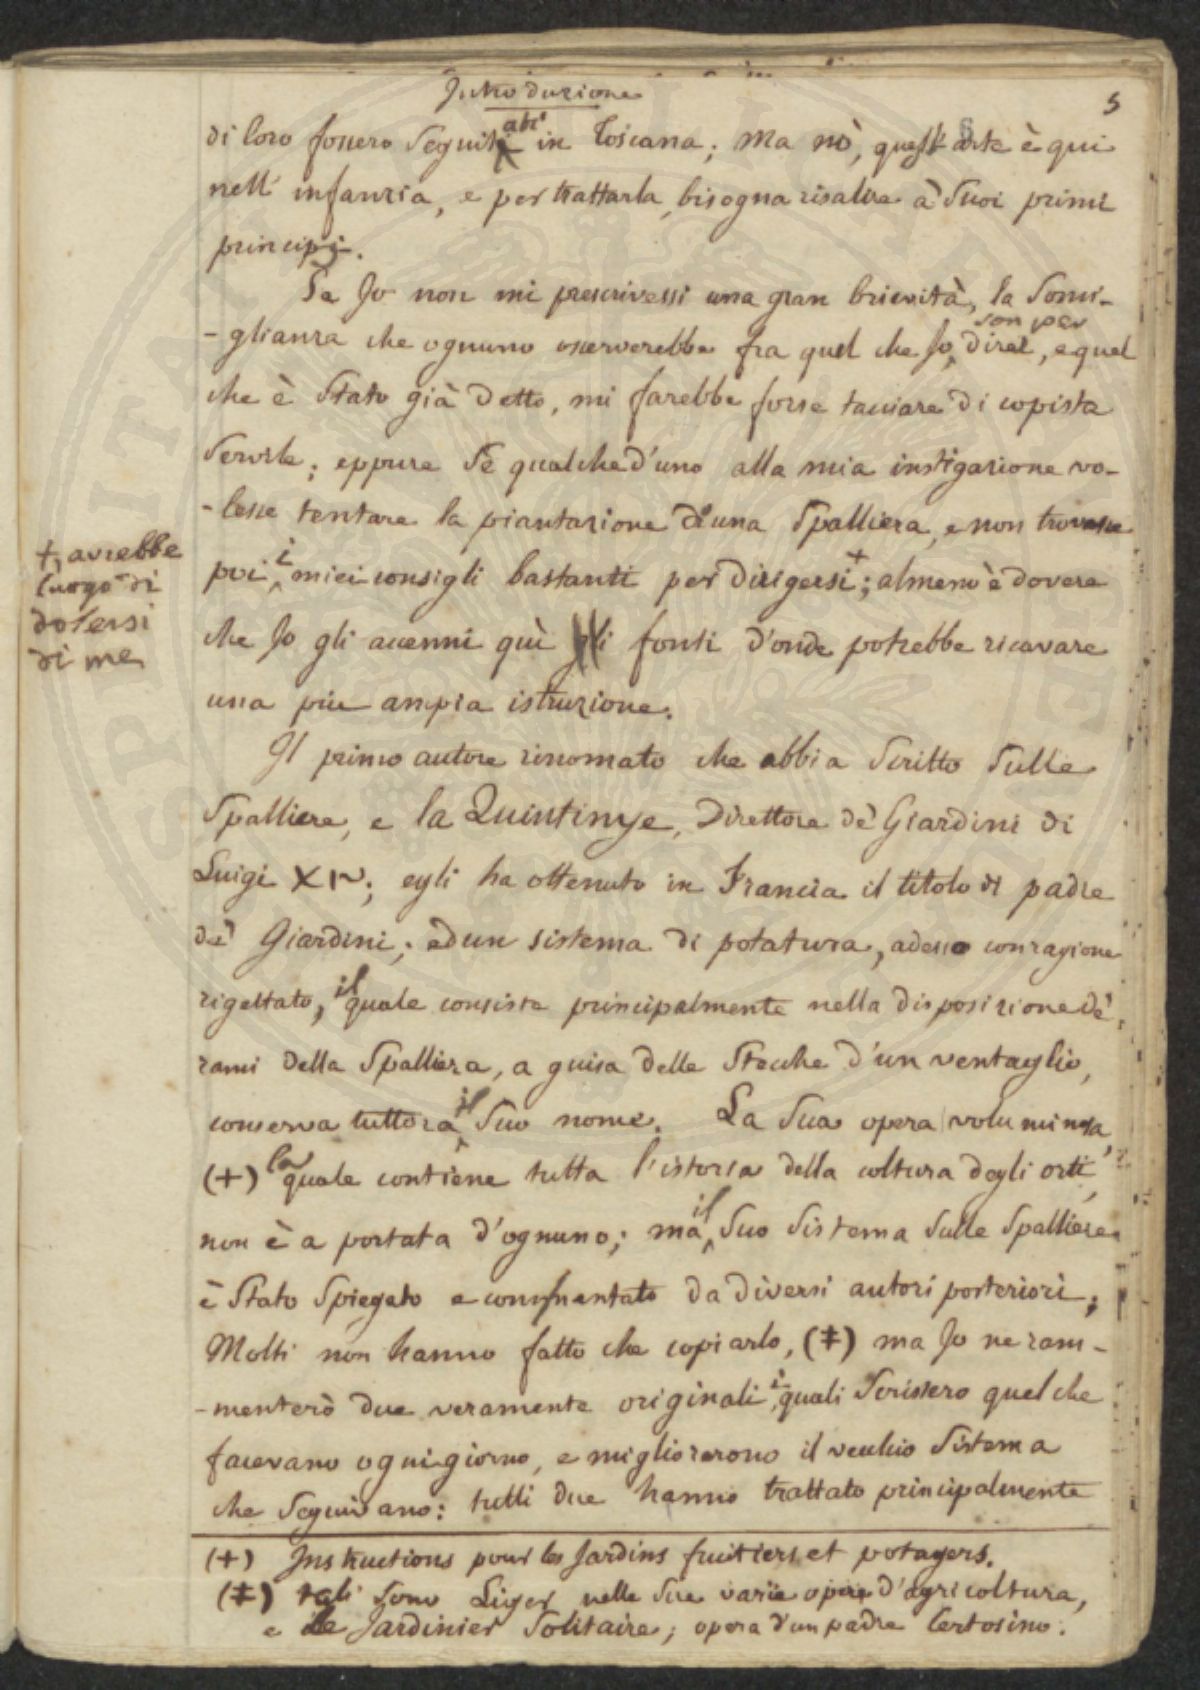 Introduzione
5
abi
di loro fossero seguiti in Toscana; ma nò, quest'arte è qui
nell' infanzia, e per trattarla, bisogna risalire à suoi primi
principj.
Se Jo non mi prescrivessi una gran brievità, la somi-
son per
-glianza che ognuno osserverebbe fra quel che Jo dire, e quel
che è stato già detto, mi farebbe forse tacciare di copista
servile; eppure se qualched'uno alla mia instigazione vo-
-lesse tentare la piantazione di una Spalliera, e non trovasse
poi i miei consigli bastanti per dirigersi +; almeno è dovere
+, avrebbe
luogo di
dolersi
di me
che Jo gli accenni quì gli fonti d'onde potrebbe ricavare
una piu ampia istruzione.
Il primo autore rinomato che abbia scritto sulle
Spalliere, e la Quintinye, Direttore de' Giardini di
Luigi XIV; egli ha ottenuto in Francia il titolo di padre
de' Giardini; ed un sistema di potatura, adesso con ragione
rigettato, il quale consiste principalmente nella disposizione de'
rami della Spalliera, a guisa delle stecche d'un ventaglio,
conserva tuttora il suo nome. La sua opera voluminosa,
(+) la quale contiene tutta l'istoria della coltura degli orti,
non è a portata d'ognuno; ma il suo sistema sulle Spalliere
è stato spiegato e commentato da diversi autori posteriori;
Molti non hanno fatto che copiarlo, (‡) ma Jo ne ram-
-menterò due veramente originali i quali scrissero quel che
facevano ogni giorno, e migliorarono il vecchio sistema
che seguivano: tutti due hanno trattato principalmente
(+) Instructions pour les Jardins fruitiers et potagers.
(‡) tali sono Liger nelle sue varie opere d'agricoltura,
e le Jardinier Solitaire; opera d'un padre Certosino.